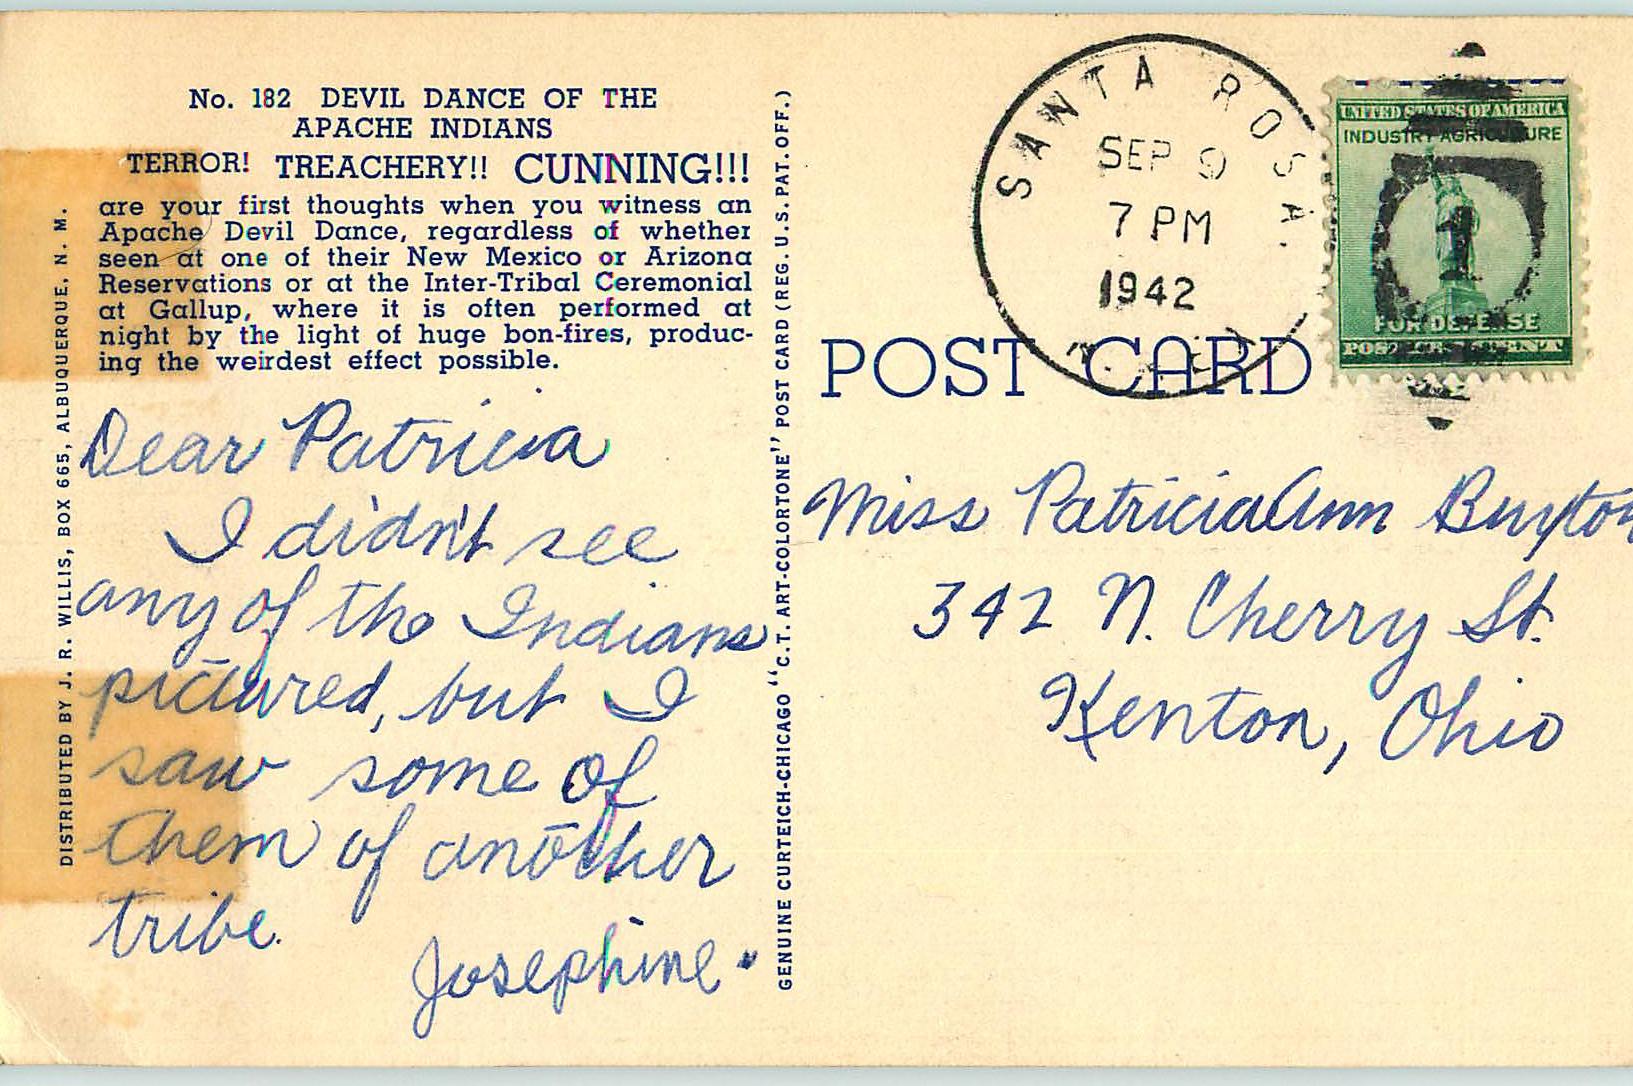 No. 182 DEVIL DANCE OF THE
APACHE INDIANS
TERROR! TREACHERY!! CUNNING!!!
are your first thoughts when you witness an
Apache Devil Dance, regardless of whether
seen at one of their New Mexico or Arizona
Reservations or at the Inter-Tribal Ceremonial
at Gallup, where it is often performed at
night by the light of huge bon-fires, produc-
ing the weirdest effect possible.
DISTRIBUTED BY J. R. WILLIS, BOX 665, ALBUQUERQUE, N. M.
Dear Patricia
I didn't see
any of the Indians
pictured, but I
saw some of
them of another
tribe.
Josephine.
GENUINE CURTEICH-CHICAGO "C.T. ART-COLORTONE" POST CARD (REG. U.S. PAT. OFF.)
POST CARD
SANTA ROSA.
SEP 9
7 PM
1942
UNITED STATES OF AMERICA
INDUSTRY AGRICULTURE
1
FOR DEFENSE
Miss Patricia Ann Buxton
342 N. Cherry St.
Kenton, Ohio